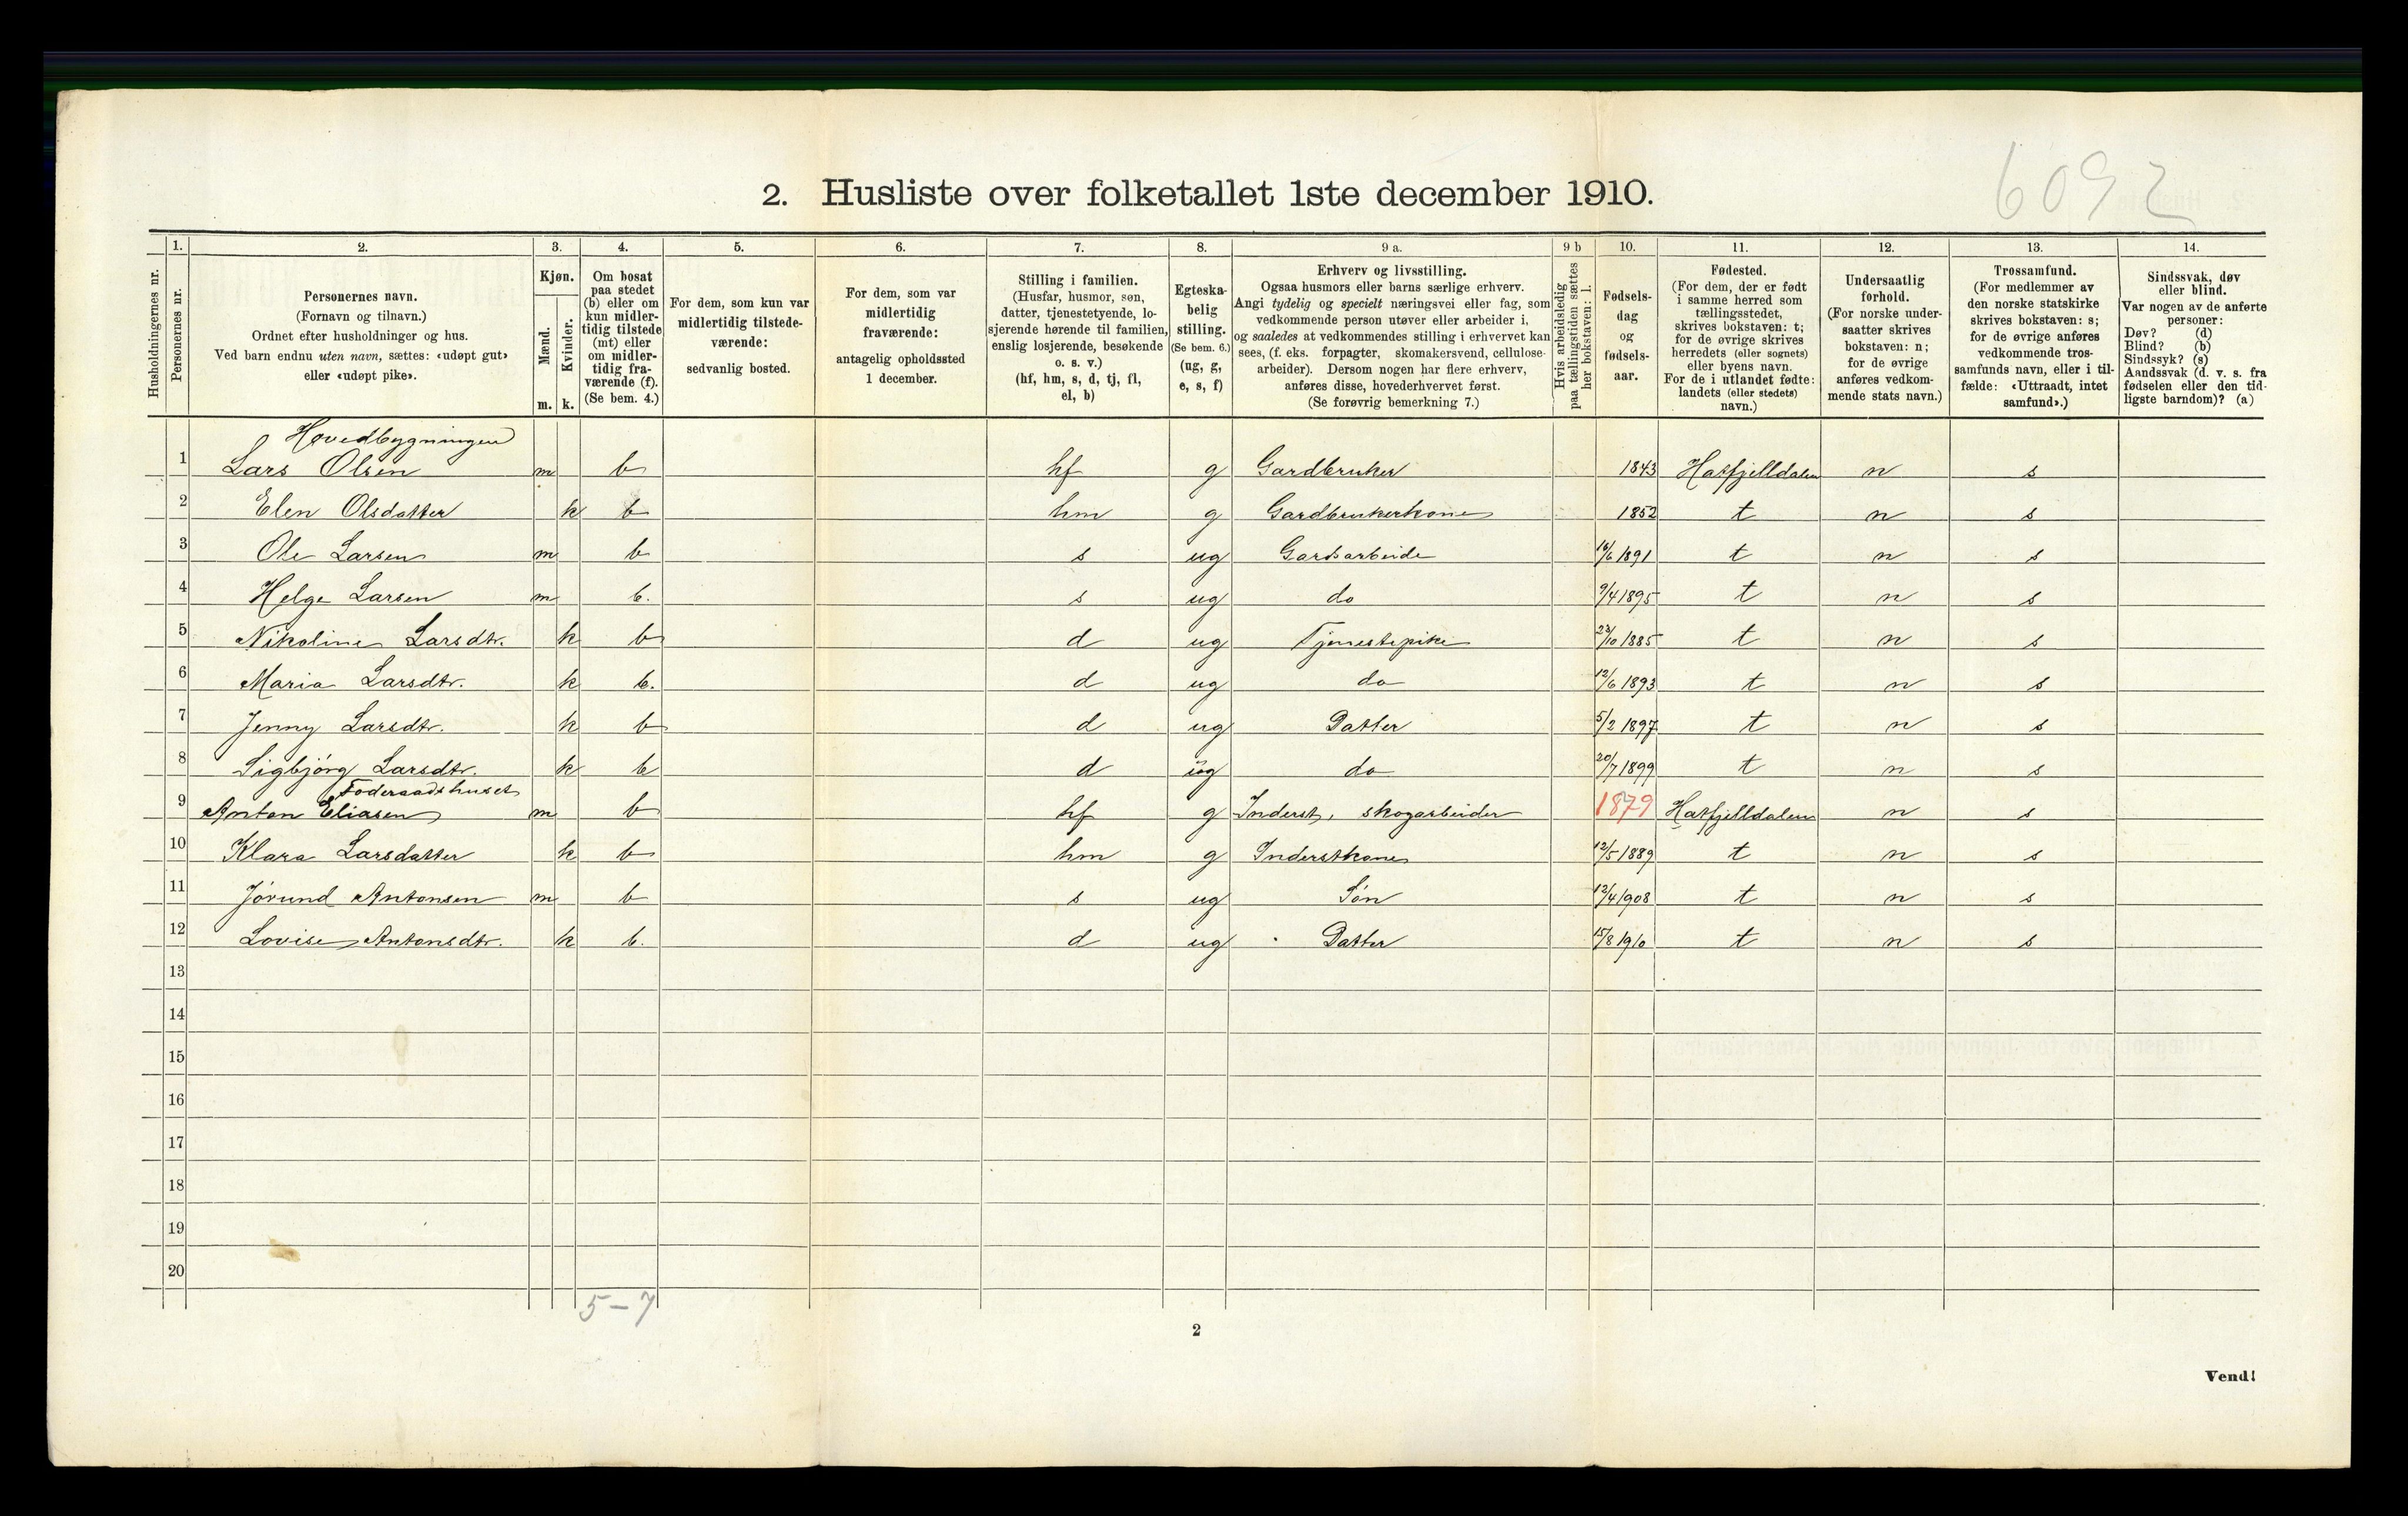 6092
2. Husliste over folketallet 1ste december 1910.
Husholdningernes nr.
1.
Personernes nr.
2.
Personernes navn.
(Fornavn og tilnavn.)
Ordnet efter husholdninger og hus.
Ved barn endnu uten navn, sættes: «udøpt gut»
eller «udøpt pike».
3.
Kjøn.
Mænd.
Kvinder.
m. k.
4.
Om bosat
paa stedet
(b) eller om
kun midler-
tidig tilstede
(mt) eller
om midler-
tidig fra-
værende (f).
(Se bem. 4.)
5.
For dem, som kun var
midlertidig tilstede-
værende:
sedvanlig bosted.
6.
For dem, som var
midlertidig
fraværende:
antagelig opholdssted
1 december.
7.
Stilling i familien.
(Husfar, husmor, søn,
datter, tjenestetyende, lo-
sjerende hørende til familien,
enslig losjerende, besøkende
o. s. v.)
(hf, hm, s, d, tj, fl,
el, b)
8.
Egteska-
belig
stilling.
(Se bem. 6.)
(ug, g,
e, s, f)
9 a.
Erhverv og livsstilling.
Ogsaa husmors eller barns særlige erhverv.
Angi tydelig og specielt næringsvei eller fag, som
vedkommende person utøver eller arbeider i,
og saaledes at vedkommendes stilling i erhvervet kan
sees, (f. eks. forpagter, skomakersvend, cellulose-
arbeider). Dersom nogen har flere erhverv,
anføres disse, hovederhvervet først.
(Se forøvrig bemerkning 7.)
9 b
Hvis arbeidsledig
paa tællingstiden sættes
her bokstaven: l.
10.
Fødsels-
dag
og
fødsels-
aar.
11.
Fødested.
(For dem, der er født
i samme herred som
tællingsstedet,
skrives bokstaven: t;
for de øvrige skrives
herredets (eller sognets)
eller byens navn.
For de i utlandet fødte:
landets (eller stedets)
navn.)
12.
Undersaatlig
forhold.
(For norske under-
saatter skrives
bokstaven: n;
for de øvrige
anføres vedkom-
mende stats navn.)
13.
Trossamfund.
(For medlemmer av
den norske statskirke
skrives bokstaven: s;
for de øvrige anføres
vedkommende tros-
samfunds navn, eller i til-
fælde: «Uttraadt, intet
samfund».)
14.
Sindssvak, døv
eller blind.
Var nogen av de anførte
personer:
Døv? (d)
Blind? (b)
Sindssyk? (s)
Aandssvak (d. v. s. fra
fødselen eller den tid-
ligste barndom)? (a)
Hovedbygningen
1 Lars Olsen m b hf g Gardbruker 1843 Hatfjelldalen n s
2 Elen Olsdatter k b hm g Gardbrukerkone 1852 t n s
3 Ole Larsen m b s ug Gardsarbeide 16/6 1891 t n s
4 Helge Larsen m b. s ug do 9/4 1895 t n s
5 Nikoline Larsdtr. k b d ug Tjenestepike 23/10 1885 t n s
6 Maria Larsdtr. k b. d ug do 12/6 1893 t n s
7 Jenny Larsdtr. k b d ug Datter 5/2 1897 t n s
8 Sigbjörg Larsdtr. k b d ug do 20/7 1899 t n s
Föderaadshuset
9 Anton Eliasen m b hf g Inderst, skogarbeider 1879 Hatfjelldalen n s
10 Klara Larsdatter k b hm g Inderstkone 12/5 1889 t n s
11 Jörund Antonsen m b s ug Sön 12/4 1908 t n s
12 Lovise Antonsdtr. k b. d ug Datter 15/8 1910 t n s
13
14
15
16
17
18
19
20
5-7
2
Vend!